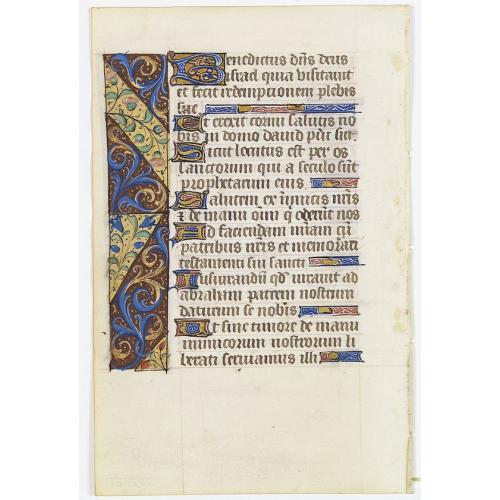 Benedictus dñs deus
israel quia visitavit
et fecit redemptionem plebis
sue
Et erexit cornu salutis no
bis in domo david pueri sui
Sicut locutus est per os
sanctorum qui a seculo sunt
prophetarum eius
Salutem ex inimicis nr̃is
et de manu oim̃ q̃ oderunt nos
Ad faciendam miam̃ cũ
patribus nr̃is et memorari
testamenti sui sancti
Iusiurandũ qd̃ iuravit ad
abraham patrem nostrum
daturum se nobis
Ut sine timore de manu
inimicorum nostrorum li
berati serviamus illi